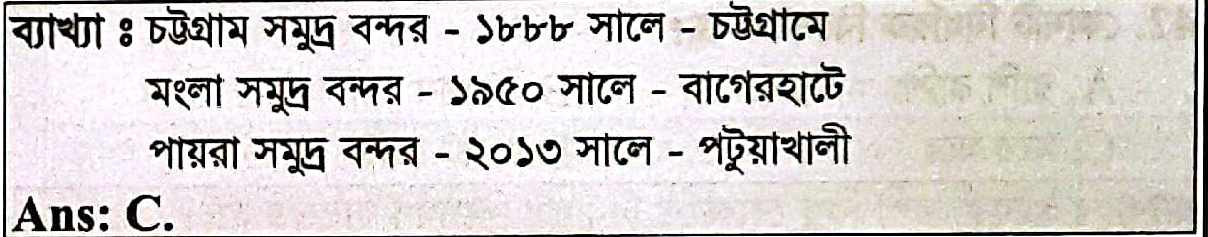 ব্যাখ্যা ঃ চট্টগ্রাম সমুদ্র বন্দর - ১৮৮৮ সালে - চট্টগ্রামে
মংলা সমুদ্র বন্দর - ১৯৫০ সালে - বাগেরহাটে
পায়রা সমুদ্র বন্দর - ২০১৩ সালে - পটুয়াখালী
Ans: C.